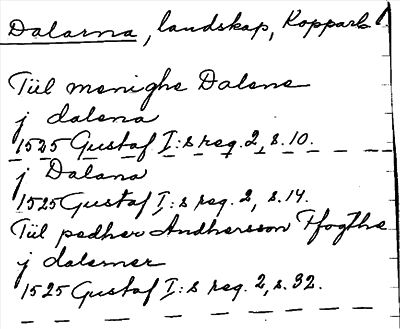 Dalarna, landskap, Kopparb. l.
Tiil menighe Dalene
j dalena
1525 Gustaf I:s reg. 2, s. 10.
j Dalana
1525 Gustaf I:s reg. 2, s. 14.
Tiil pedher Andhersson ffogthe
j dalerner
1525 Gustaf I:s reg. 2, s. 32.